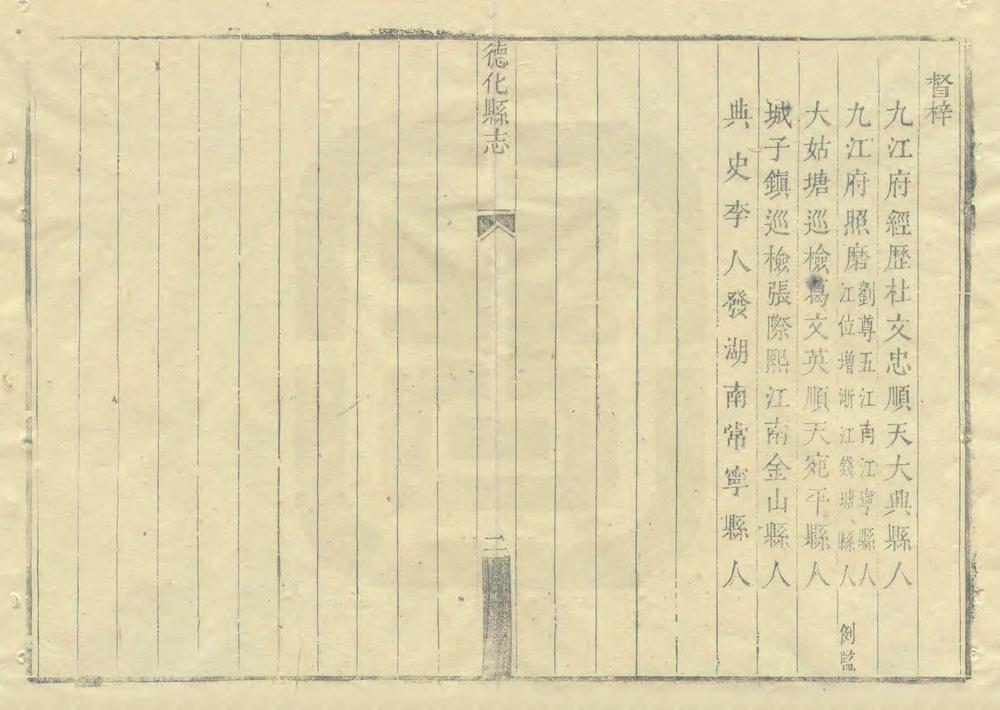 督梓
九江府經歷杜文忠順天大興縣人
九江府照磨
劉尊五江南江寧縣人
江位增浙江錢塘縣人 例監
大姑塘巡檢葛文英順天宛平縣人
城子鎮巡檢張際熙江南金山縣人
典史李人發湖南常寧縣人
德化縣志
二